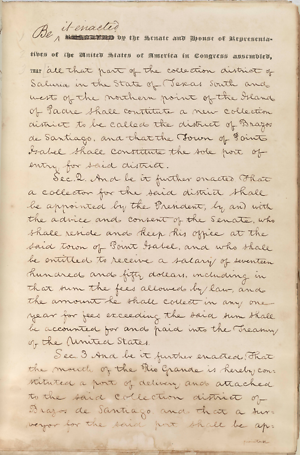 Be it enacted
by the Senate and House of Representa-
tives of the United States of America in Congress assembled,
THAT all that part of the collection district of
Saluria in the State of Texas South and
west of the northern point of the Island
of Padre shall constitute a new collection
district to be called the district of Brazos
de Santiago, and that the Town of Point
Isabel shall constitute the sole port of
entry for said district.
Sec. 2. And be it further enacted That
a collector for the said district shall
be appointed by the President, by and with
the advice and consent of the Senate, who
shall reside and keep his office at the
said town of Point Isabel, and who shall
be entitled to receive a salary of seventeen
hundred and fifty dollars, including in
that sum the fees allowed by law, and
the amount he shall collect in any one
year for fees exceeding the said sum shall
be accounted for and paid into the Treasury
of the United States.
Sec. 3. And be it further enacted, That
the mouth of the Rio Grande is hereby con-
stituted a port of delivery and attached
to the said collection district of
Brazos de Santiago and that a sur-
veyor for the said port shall be ap-